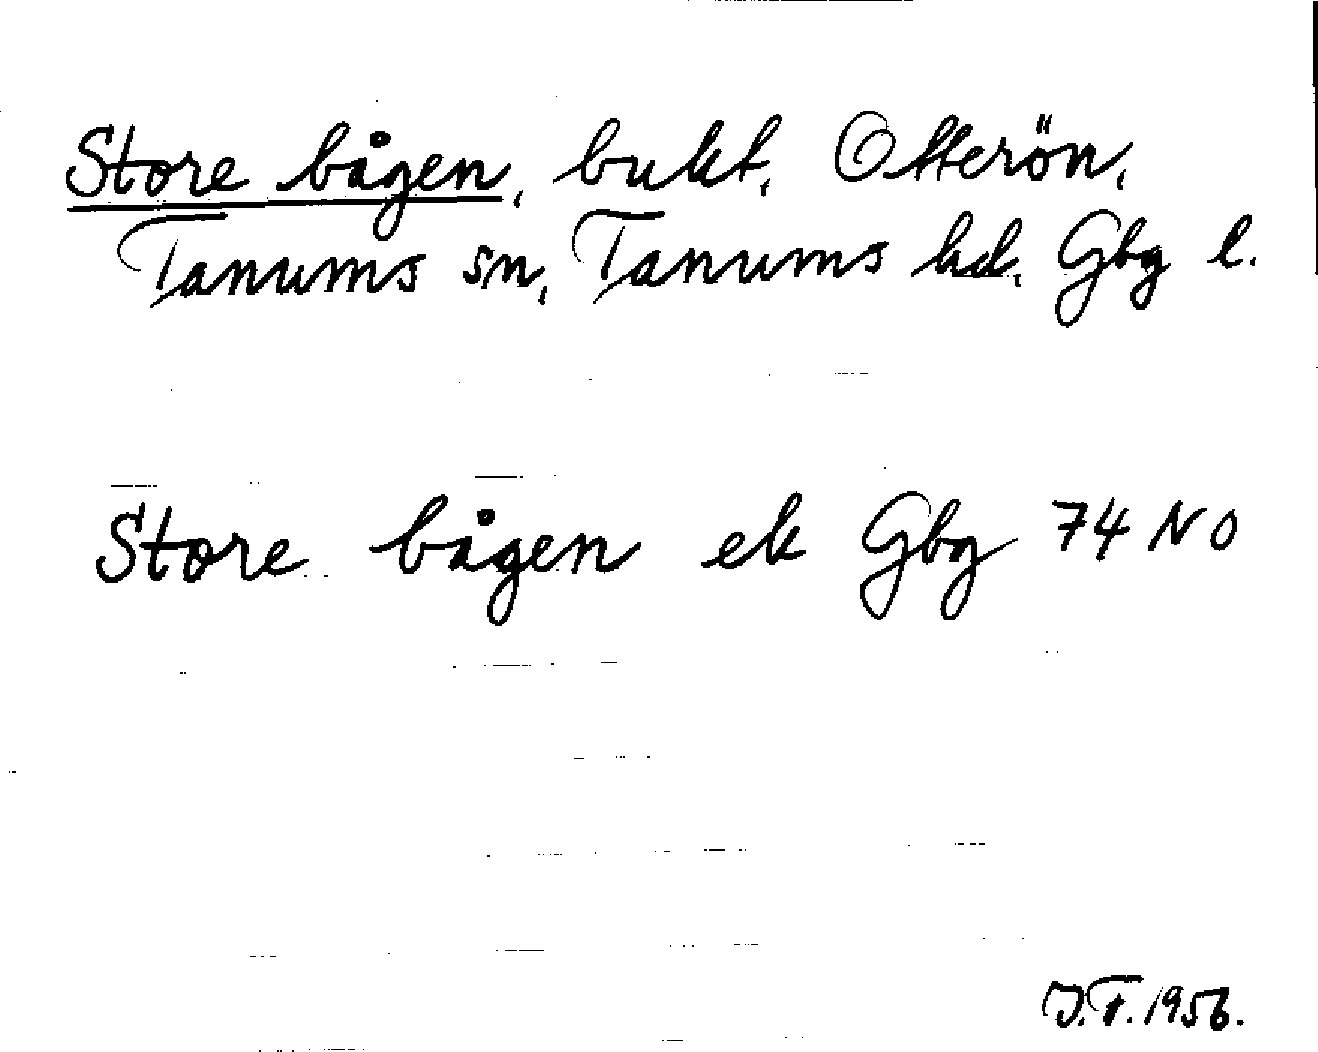 Store bågen, bukt, Otterön,
Tanums sn, Tanums hd, Gbg l.
Store bågen ek Gbg 74 NO
J.F. 1956.